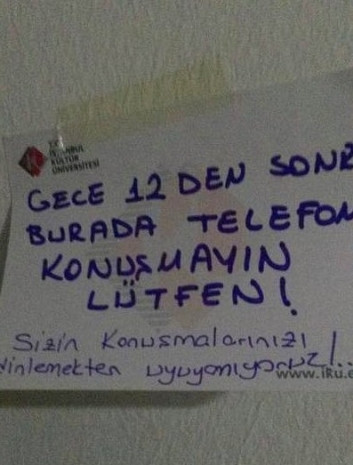 T.C.
İSTANBUL
KÜLTÜR
ÜNİVERSİTESİ
GECE 12 DEN SONR
BURADA TELEFON
KONUŞMAYIN
LÜTFEN!
Sizin Konuşmalarınızı
dinlemekten uyuyamıyoruz!..
www.iRu.e